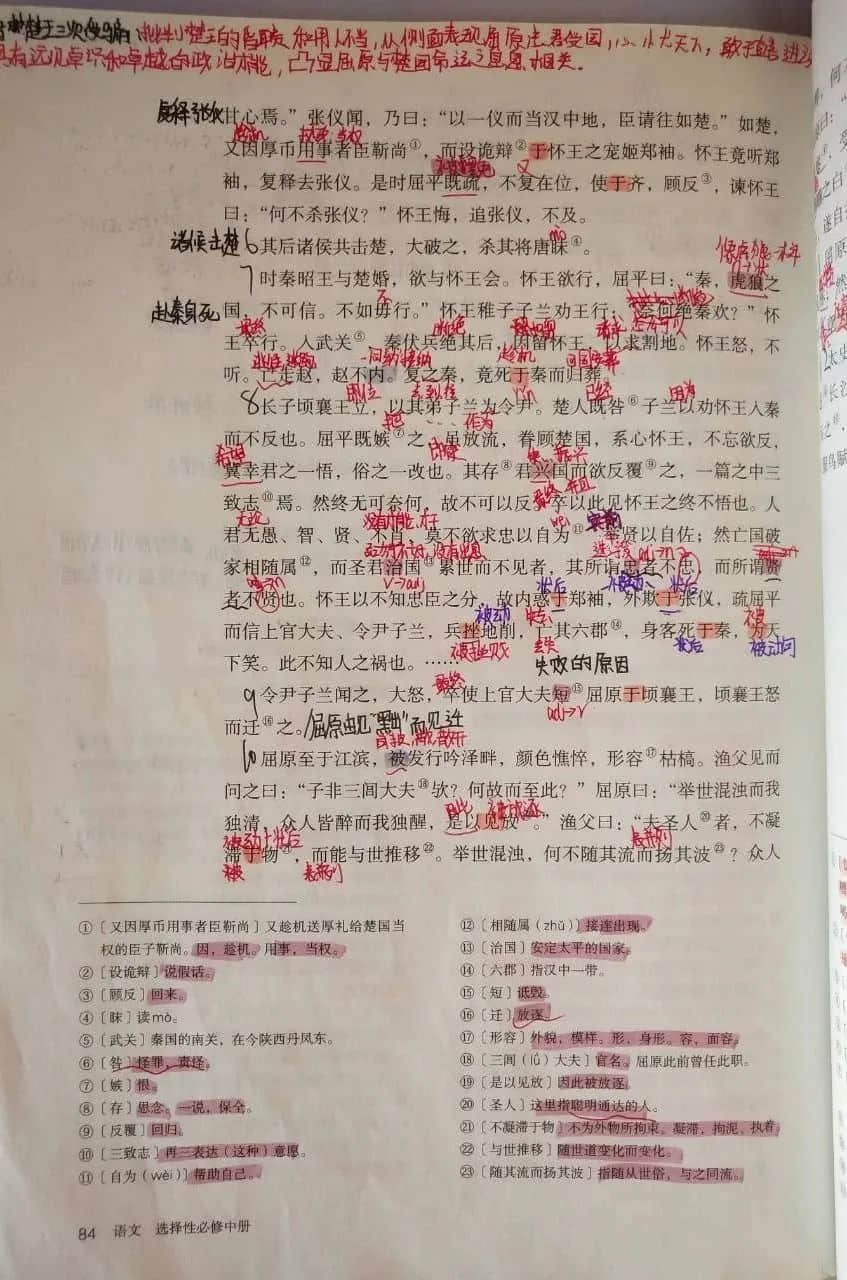 楚王三次受骗 批判楚王的昏聩和用人不当,从侧面表现屈原忠君爱国,心忧天下,敢于直言进谏
具有远见卓识和卓越的政治才能,凸显屈原与楚国命运之息息相关。
复释张仪
甘心焉。”张仪闻,乃曰:“以一仪而当汉中地,臣请往如楚。”如楚,
趁机 当权
又因厚币用事者臣靳尚①,而设诡辩②于怀王之宠姬郑袖。怀王竟听郑
又
袖,复释去张仪。是时屈平既疏,不复在位,使于齐,顾反③,谏怀王
曰:“何不杀张仪?”怀王悔,追张仪,不及。
诸侯击楚 mò
6其后诸侯共击楚,大破之,杀其将唐昧④。
7时秦昭王与楚婚,欲与怀王会。怀王欲行,屈平曰:“秦,虎狼之
赴秦身死 不
国,不可信。不如毋行。”怀王稚子子兰劝王行:“奈何绝秦欢?”怀
最终 断绝
王卒行。入武关⑤,秦伏兵绝其后,因留怀王,以求割地。怀王怒,不
趁机 回国安葬
听。亡走赵,赵不内。复之秦,竟死于秦而归葬。
8长子顷襄王立,以其弟子兰为令尹。楚人既咎⑥子兰以劝怀王入秦
把……作为 已经 因为
而不反也。屈平既嫉⑦之,虽放流,眷顾楚国,系心怀王,不忘欲反,
希望
冀幸君之一悟,俗之一改也。其存⑧君兴国而欲反覆⑨之,一篇之中三
致志⑩焉。然终无可奈何,故不可以反,卒以此见怀王之终不悟也。人
无论 wèi
君无愚、智、贤、不肖,莫不欲求忠以自为⑪,举贤以自佐;然亡国破
选拔 adj→n
家相随属⑫,而圣君治国⑬累世而不见者,其所谓忠者不忠,而所谓贤
v→adj 状后 状后
者不贤也。怀王以不知忠臣之分,故内惑于郑袖,外欺于张仪,疏屈平
被动 失去 被
而信上官大夫、令尹子兰,兵挫地削,亡其六郡⑭,身客死于秦,为天
状后 被动词
下笑。此不知人之祸也。…… 失败的原因
最终
9令尹子兰闻之,大怒,卒使上官大夫短⑮屈原于顷襄王,顷襄王怒
adj→v
而迁⑯之。屈原由见“黜”而见迁
10屈原至于江滨,被发行吟泽畔,颜色憔悴,形容⑰枯槁。渔父见而
问之曰:“子非三闾大夫⑱欤?何故而至此?”屈原曰:“举世混浊而我
因此 被放逐
独清,众人皆醉而我独醒,是以见放⑲。”渔父曰:“夫圣人⑳者,不凝
被动+状后
滞于物㉑,而能与世推移㉒。举世混浊,何不随其流而扬其波㉓?众人
被
①〔又因厚币用事者臣靳尚〕又趁机送厚礼给楚国当
权的臣子靳尚。因,趁机。用事,当权。
②〔设诡辩〕说假话。
③〔顾反〕回来。
④〔昧〕读mò。
⑤〔武关〕秦国的南关,在今陕西丹凤东。
⑥〔咎〕怪罪,责怪。
⑦〔嫉〕恨。
⑧〔存〕思念。一说,保全。
⑨〔反覆〕回归。
⑩〔三致志〕再三表达(这种)意愿。
⑪〔自为(wèi)〕帮助自己。
⑫〔相随属(zhǔ)〕接连出现。
⑬〔治国〕安定太平的国家。
⑭〔六郡〕指汉中一带。
⑮〔短〕诋毁。
⑯〔迁〕放逐。
⑰〔形容〕外貌,模样。形,身形。容,面容。
⑱〔三闾(lǘ)大夫〕官名。屈原此前曾任此职。
⑲〔是以见放〕因此被放逐。
⑳〔圣人〕这里指聪明通达的人。
㉑〔不凝滞于物〕不为外物所拘束。凝滞,拘泥,执着。
㉒〔与世推移〕随世道变化而变化。
㉓〔随其流而扬其波〕指随从世俗,与之同流。
84 语文 选择性必修中册